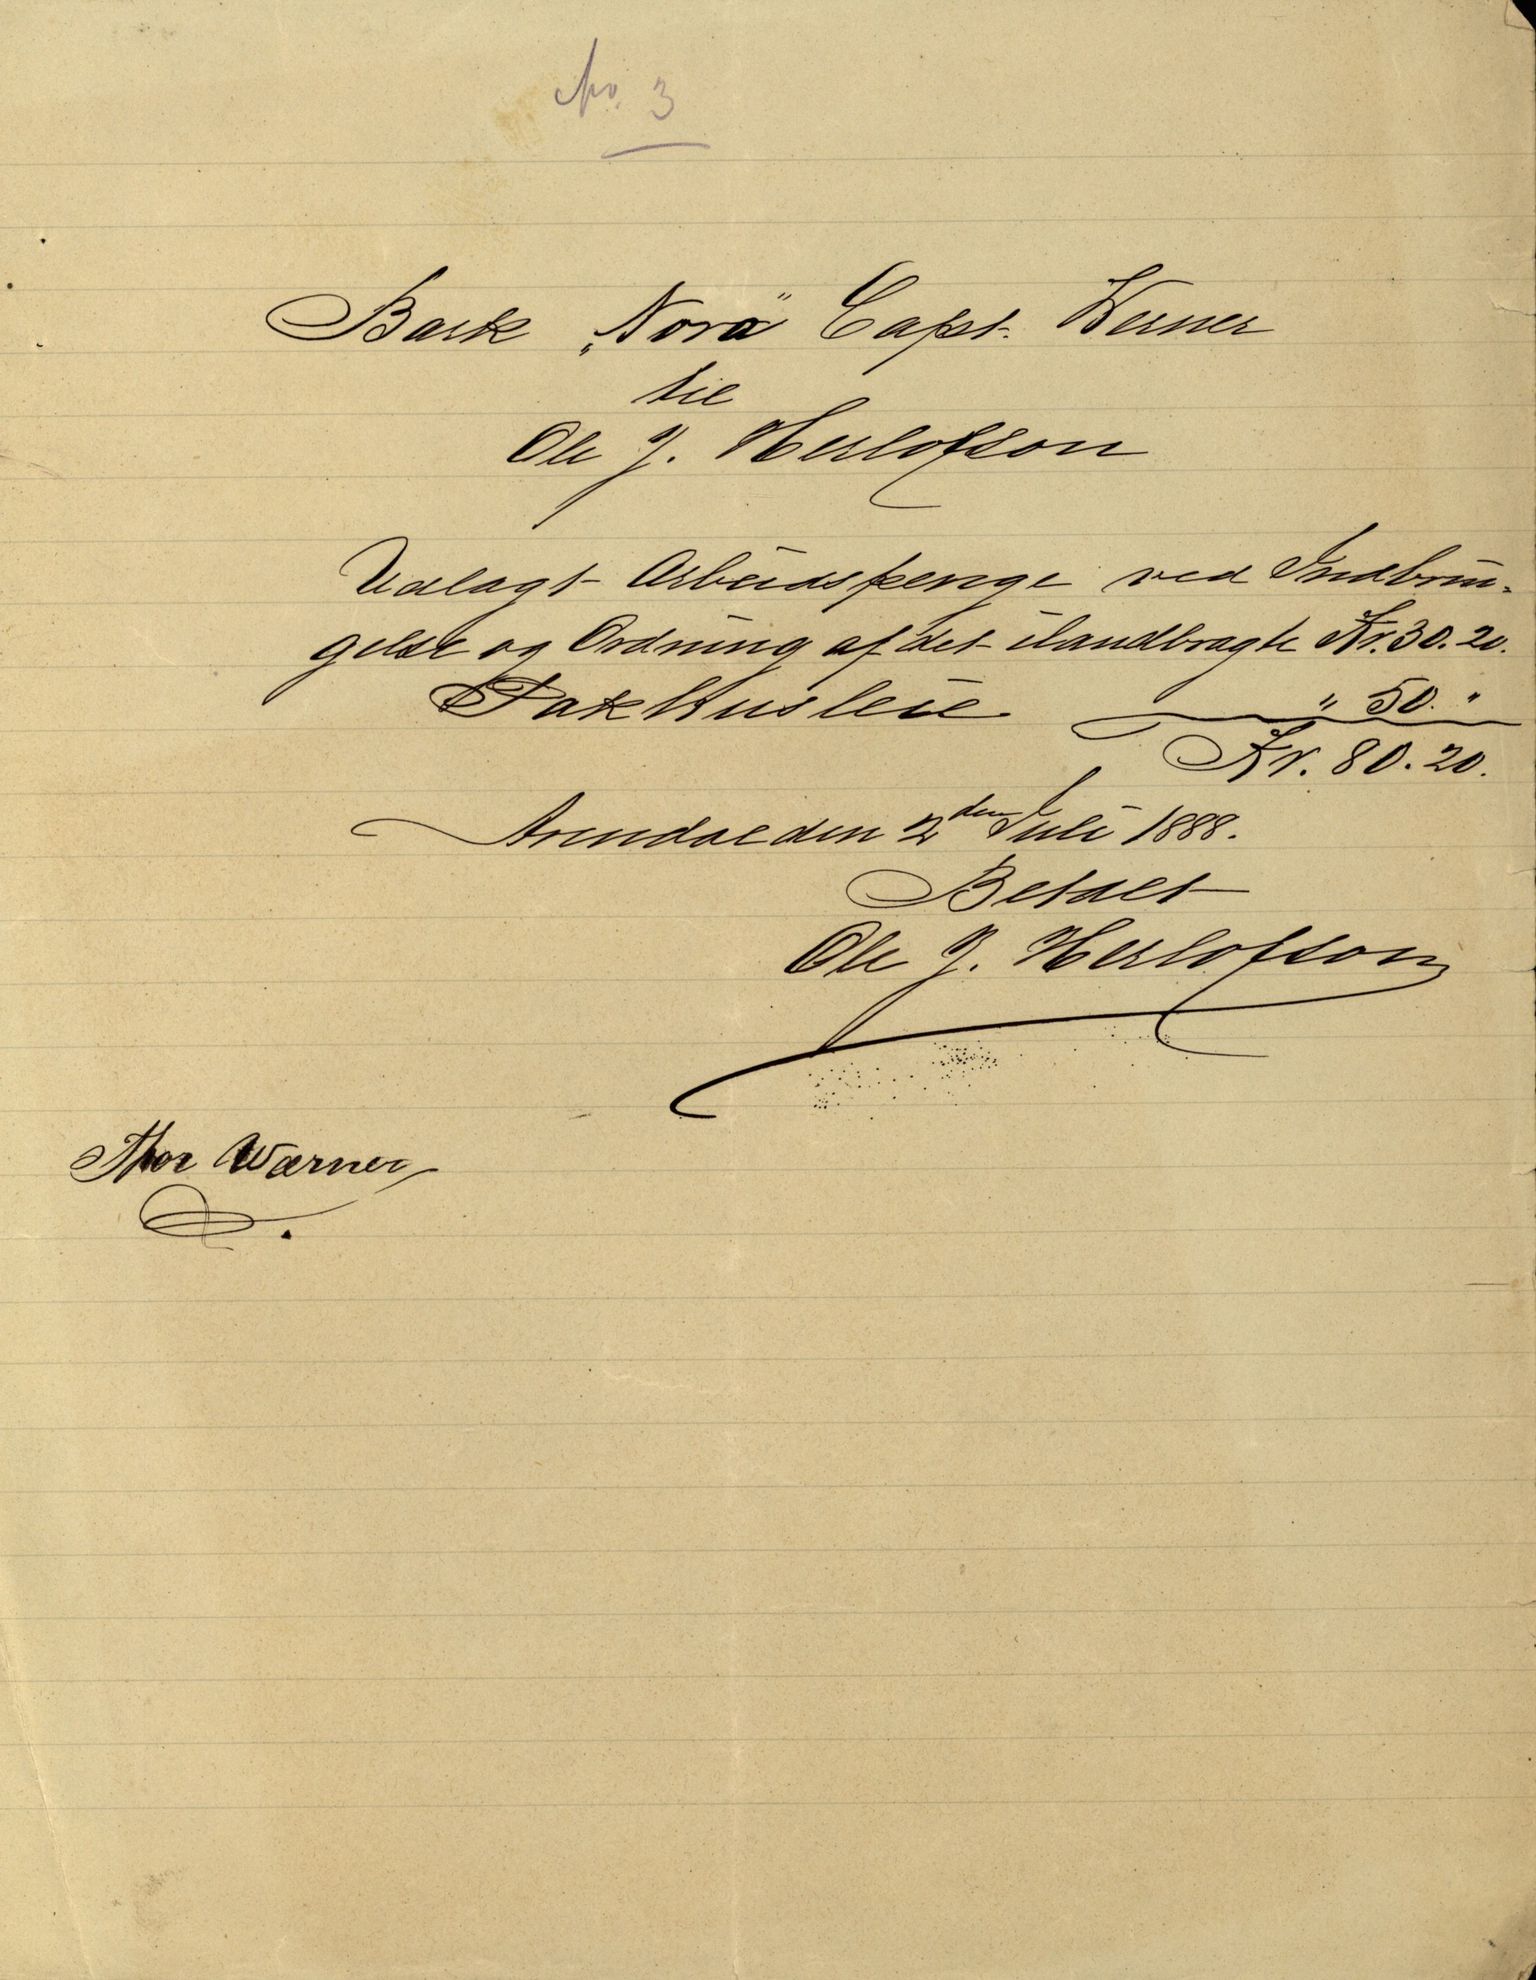 No. 3
Bark „Nora" Capt. Werner
til
Ole J. Herlofson
Udlagt Arbeidspenge ved Indbrin-
gelse og Ordning af det ilandbragte Kr. 30. 20.
Pakhusleie " 50. "
Kr. 80. 20.
Arendal den 2den Juli 1888.
Betalt
Ole J. Herlofson
Thor Wærner